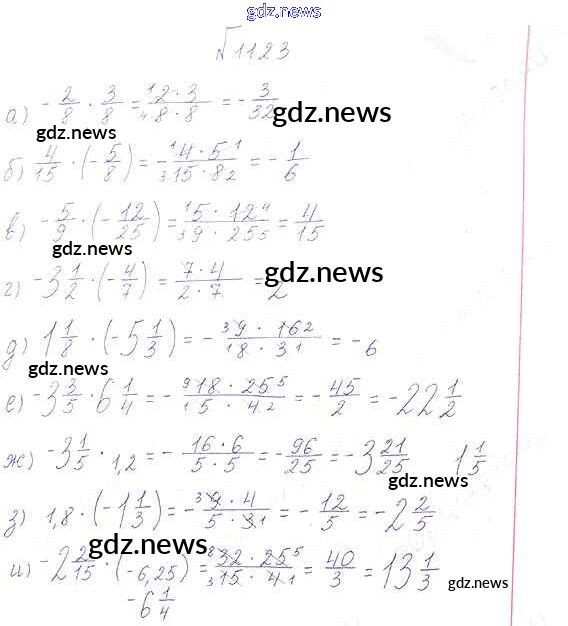 gdz.news
√1123
а) -2/8 · 3/8 = 12·3/48·8 = -3/32 gdz.news
gdz.news
б) 4/15 · (-5/8) = -14·51/315·82 = -1/6
в) -5/9 · (-12/25) = 15·124/39·255 = 4/15
gdz.news
г) -3 1/2 · (-4/7) = 7·4/2·7 = 2 gdz.news
д) 1 1/8 · (-5 1/3) = -39·162/18·31 = -6
gdz.news
е) -3 3/5 · 6 1/4 = -918·255/15·42 = -45/2 = -22 1/2
ж) -3 1/5 · 1,2 = -16·6/5·5 = -96/25 = -3 21/25 1 1/5
gdz.news
з) 1,8 · (-1 1/3) = -39·4/5·31 = -12/5 = -2 2/5
gdz.news
и) -2 2/15 · (-6,25) = 832·255/315·41 = 40/3 = 13 1/3 gdz.news
-6 1/4